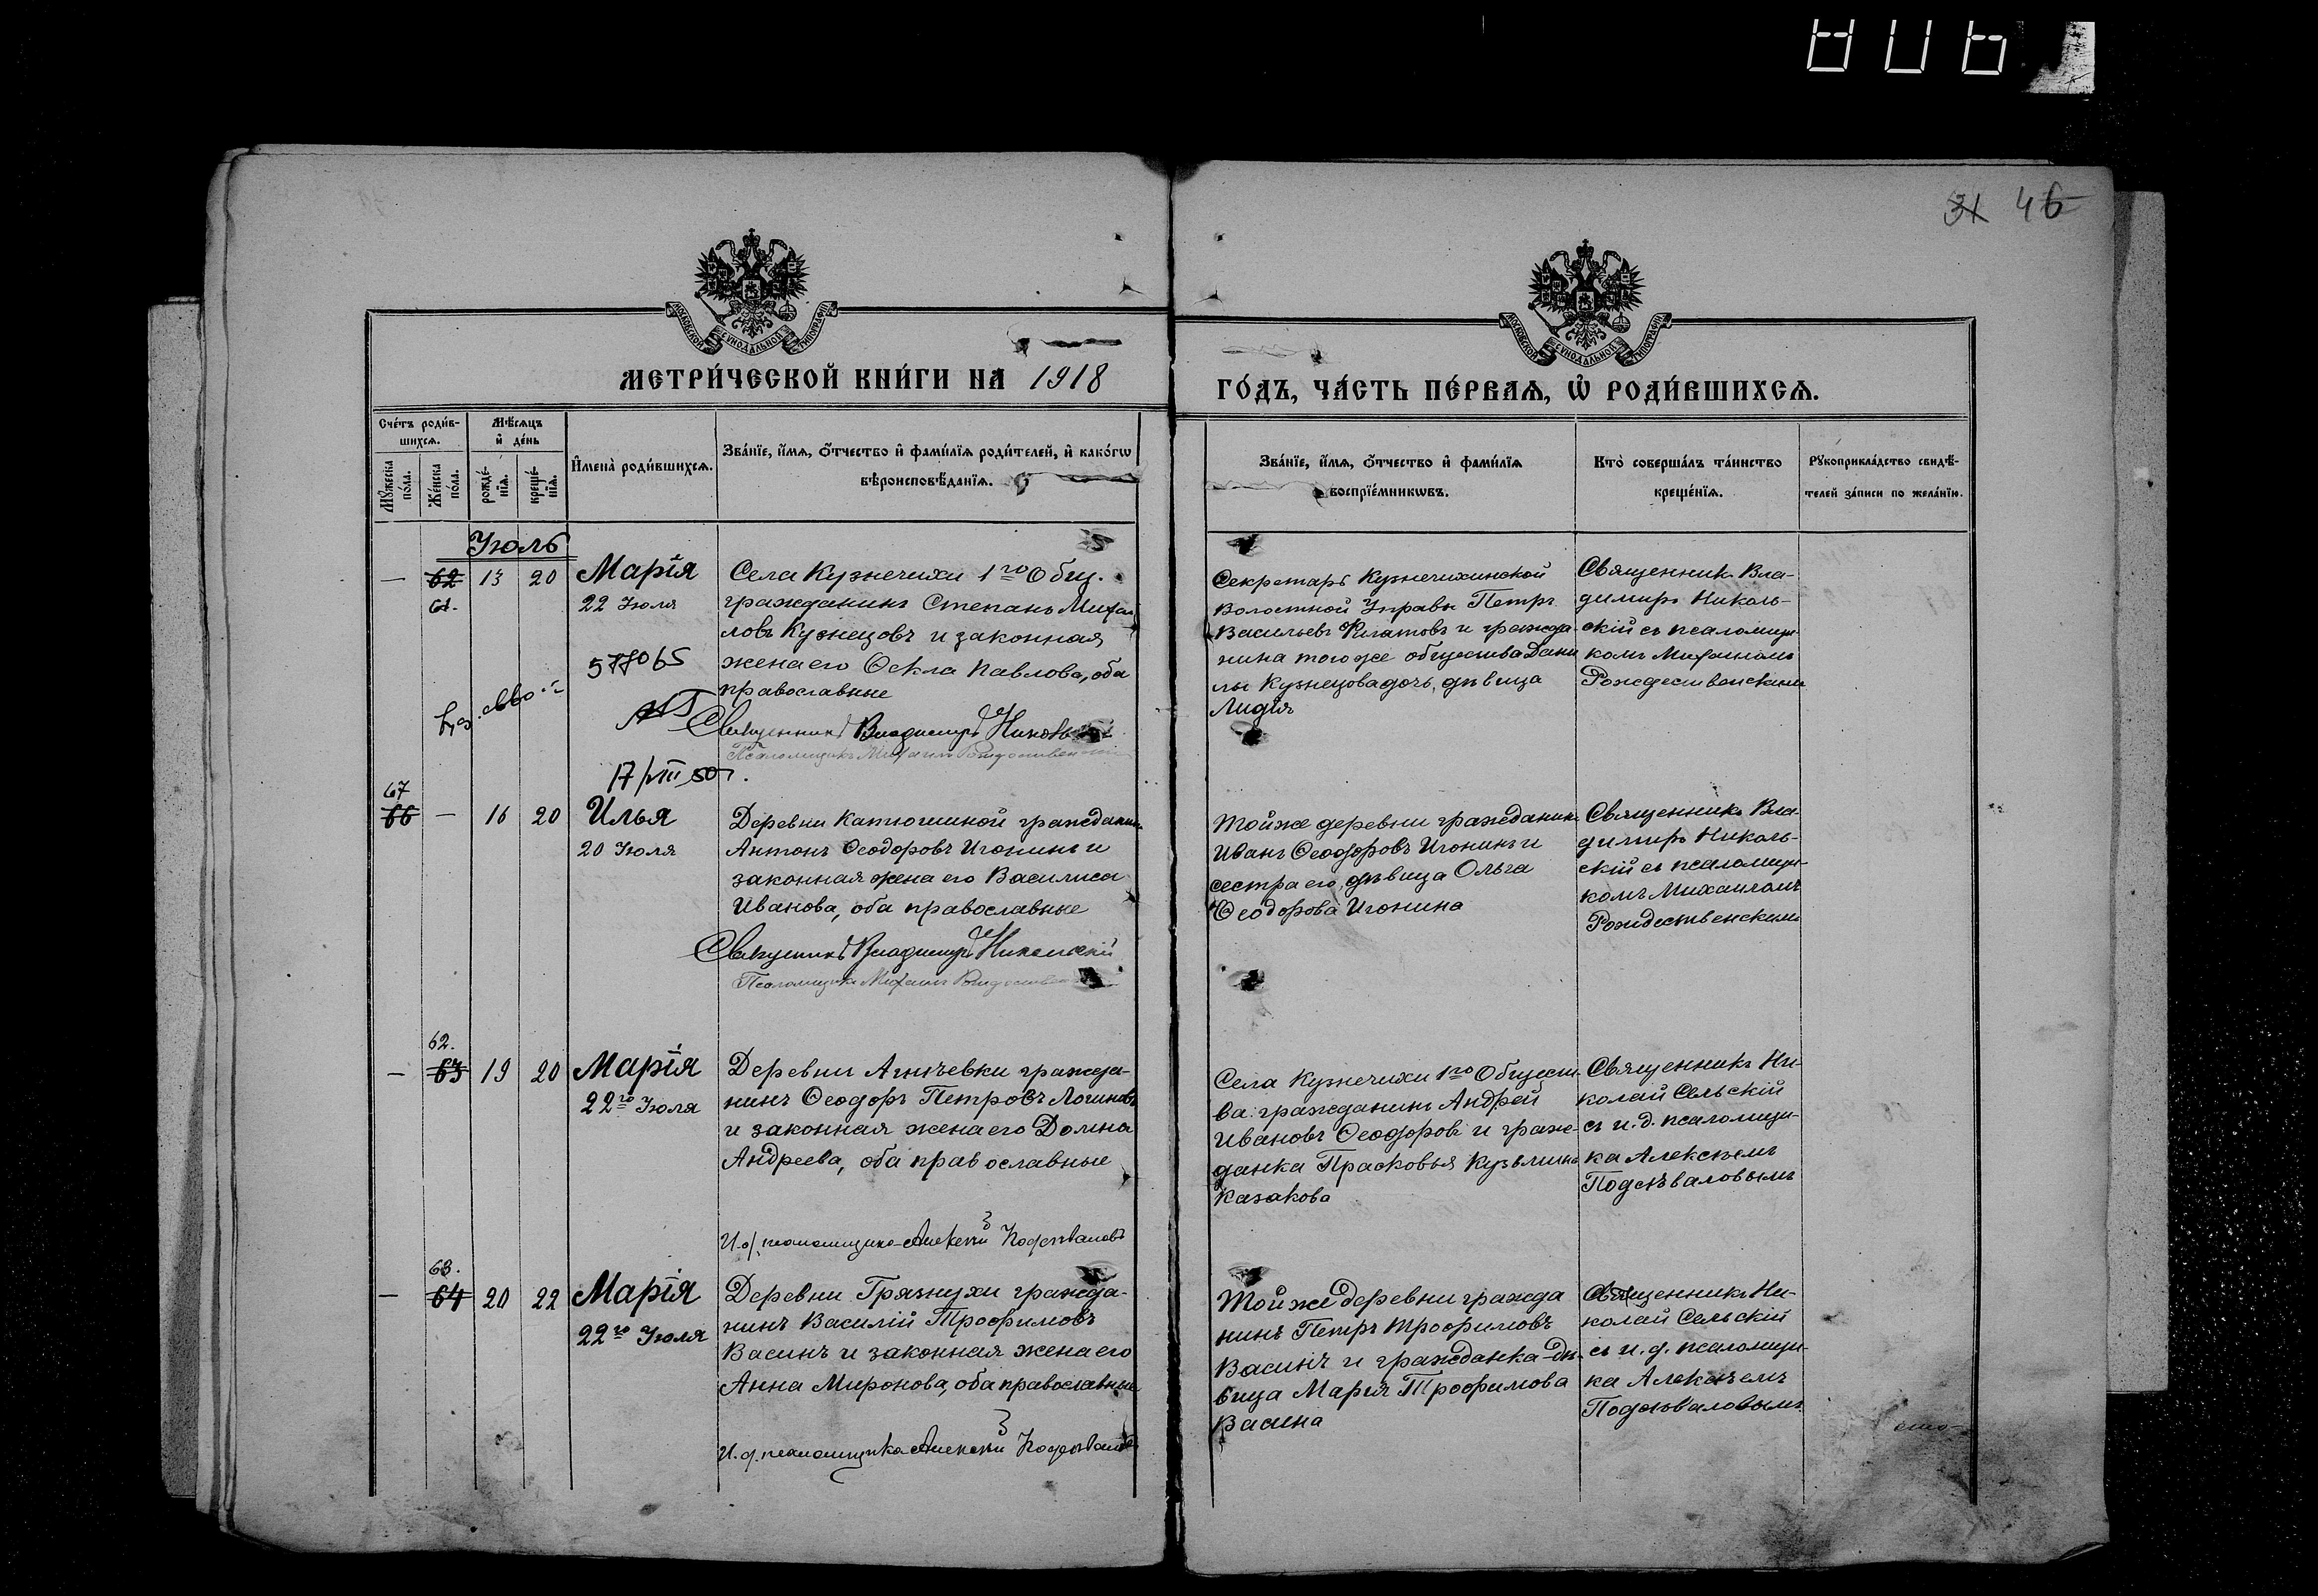 806
31 46
МОСКОВСКОЙ СѴНОДАЛЬНОЙ ТИПОГРАФІИ
МОСКОВСКОЙ СѴНОДАЛЬНОЙ ТИПОГРАФІИ
МЕТРИ́ЧЕСКОЙ КНИ́ГИ НА 1918
ГО́ДЪ, ЧА́СТЬ ПЕ́РВАѦ, Ѡ҆ РОДИ́ВШИХСѦ.
Сче́тъ роди́в-
шихсѧ.
Мѣ́сѧцъ
и҆ де́нь
Мꙋ́жеска
по́ла.
Же́нска
по́ла.
рожде́-
нїѧ.
креще́-
нїѧ.
И҆мена̀ роди́вшихсѧ.
Зва́нїе, и҆́мѧ, ѻ҆́тчество и҆ фами́лїѧ роди́телей, и҆ како́гѡ
вѣроисповѣ́данїѧ.
Зва́нїе, и҆́мѧ, ѻ҆́тчество и҆ фами́лїѧ
воспрїе́мникѡвъ.
Кто̀ соверша́лъ та́инство
креще́нїѧ.
Рꙋкоприкла́дство свидѣ́-
телей за́писи по жела́нїю.
Июль
— 62 13 20 Марія
61.
22 Июля
577065
17/VIII 50 г.
Села Кузнечихи 1го Общ.
гражданинъ Степанъ Михаи
ловъ Кузнецовъ и законная
жена его Ѳекла Павлова, оба
православные
Священникъ Владимиръ Никольскій
Псаломщикъ Михаилъ Рождественскій
Секретарь Кузнечихинской
Волостной Управы Петръ
Васильевъ Филатовъ и гражда-
нина того же общества Дани
лы Кузнецова дочь, дѣвица
Лидія
Священникъ Вла-
димиръ Николь-
скій съ псаломщи-
комъ Михаиломъ
Рождественскимъ
67
66 — 16 20 Илья
20 Июля
Деревни Катюшиной гражданинъ
Антонъ Ѳеодоровъ Игонинъ и
законная жена его Василиса
Иванова, оба православные
Священникъ Владимиръ Никольскій
Псаломщикъ Михаилъ Рождественскій
Той же деревни гражданинъ
Иванъ Ѳеодоровъ Игонинъ и
сестра его, дѣвица Ольга
Ѳеодорова Игонина
Священникъ Вла-
димиръ Николь-
скій съ псаломщи-
комъ Михаиломъ
Рождественскимъ
62.
— 63 19 20 Марія
22го Июля
Деревни гражда-
нинъ Ѳеодоръ Петровъ Логиновъ
и законная жена его Домна
Андреева, оба православные
И.д. псаломщика Алексѣй Подсѣваловъ
Села Кузнечихи 1го Общест-
ва гражданинъ Андрей
Ивановъ Ѳеодоровъ и граж-
данка Прасковья Кузьмина
Казакова
Священникъ Ни-
колай Сельскій
съ и.д. псаломщи-
ка Алексѣемъ
Подсѣваловымъ
63.
— 64 20 22 Марія
22го Июля
Деревни Грязнухи гражда-
нинъ Василій Трофимовъ
Васинъ и законная жена его
Анна Миронова, оба православные
И.д. псаломщика Алексѣй Подсѣваловъ
Той же деревни гражда
нинъ Петръ Трофимовъ
Васинъ и гражданка дѣ-
вица Марія Трофимова
Васина
Священникъ Ни-
колай Сельскій
съ и.д. псаломщи-
ка Алексѣемъ
Подсѣваловымъ